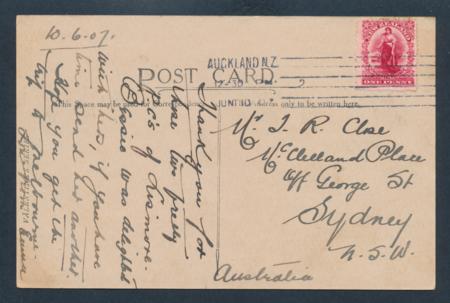 10.6.07.
AUCKLAND N.Z.
12-30 PM
JUN 10
ONE PENNY
POST CARD.
This space may be used for
address only to be written here.
Thank you for
those two pretty
P.c's of Lismore.
Bessie was delighted
with hers, if you have
time send her another.
Hope you get the
trip to Melbourne.
Emma
Mr J R Close
McClelland Place
off George St
Sydney
N.S.W.
Australia